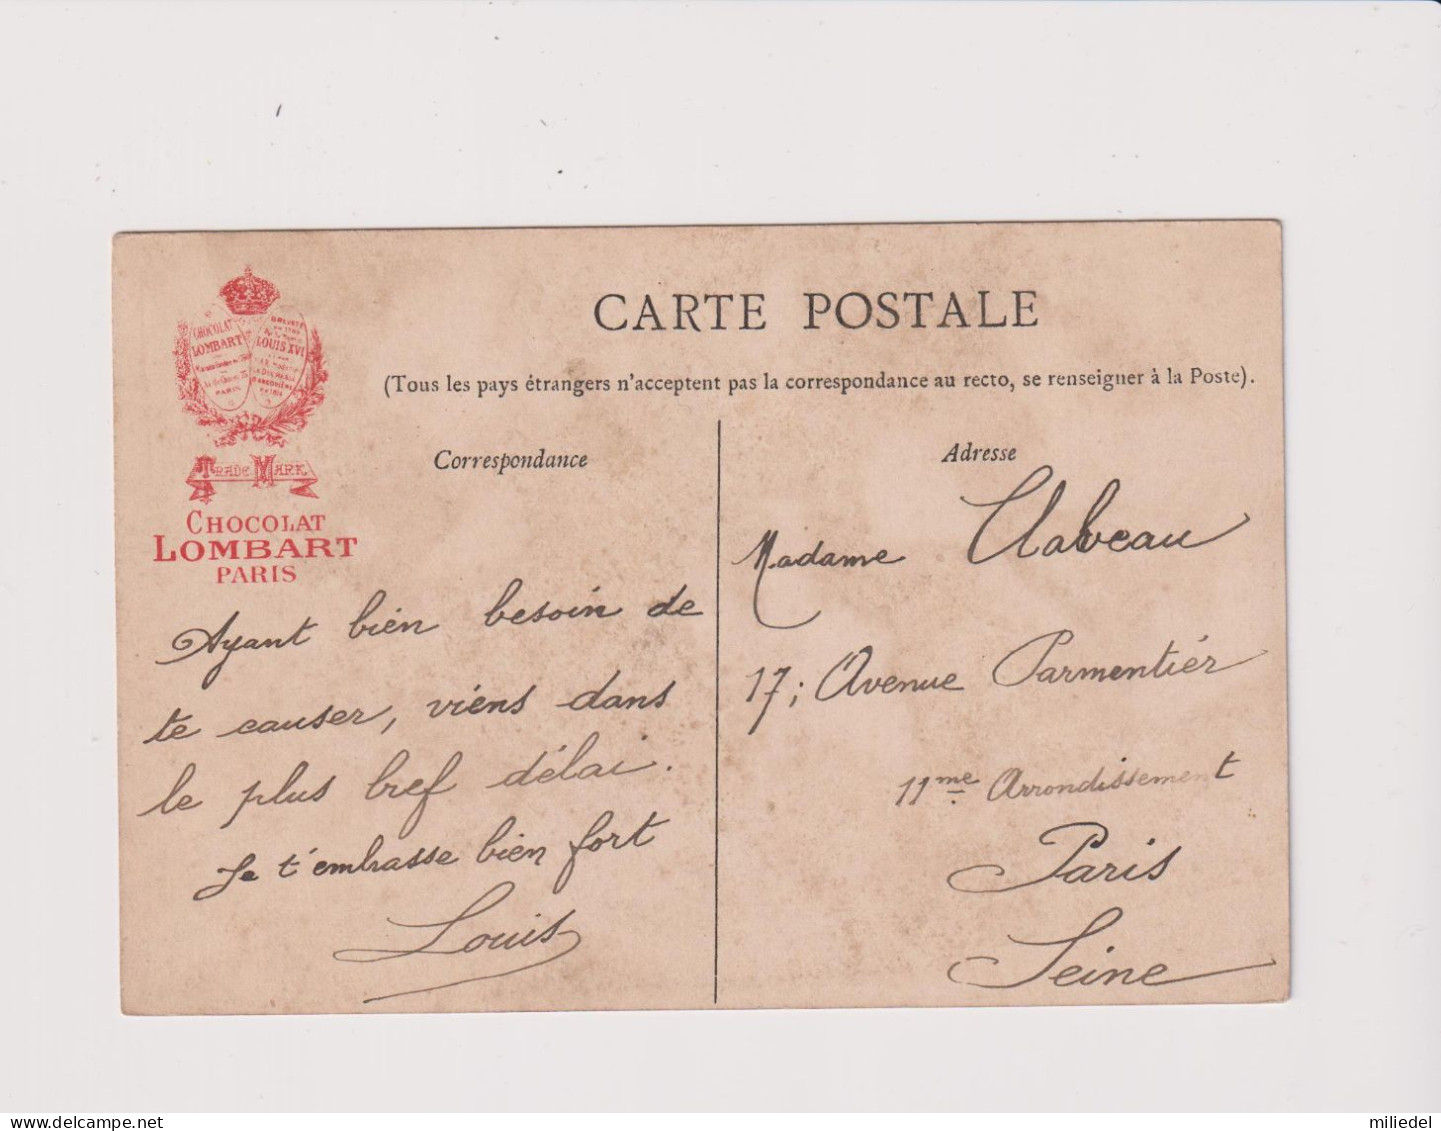 CARTE POSTALE
(Tous les pays étrangers n'acceptent pas la correspondance au recto, se renseigner à la Poste).
CHOCOLAT
LOMBART
PARIS
LOUIS XVI
TRADE MARK
CHOCOLAT
LOMBART
PARIS
Correspondance
Ayant bien besoin de
te causer, viens dans
le plus bref délai.
Je t'embrasse bien fort
Louis
Adresse
Madame Clabeau
17; Avenue Parmentiér
11me Arrondissement
Paris
Seine
milledel